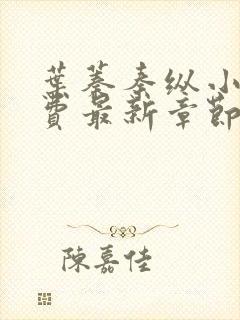 葉蓁秦纵小
費最新章節
陳嘉佳